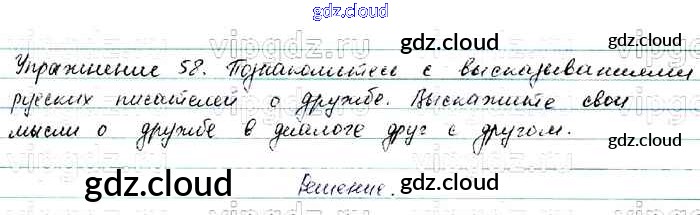 gdz.cloud
Упражнение 58. Познакомитесь с высказываниями
русских писателей о дружбе. Выскажите свои
мысли о дружбе в диалоге друг с другом.
Решение.
gdz.cloud gdz.cloud gdz.cloud